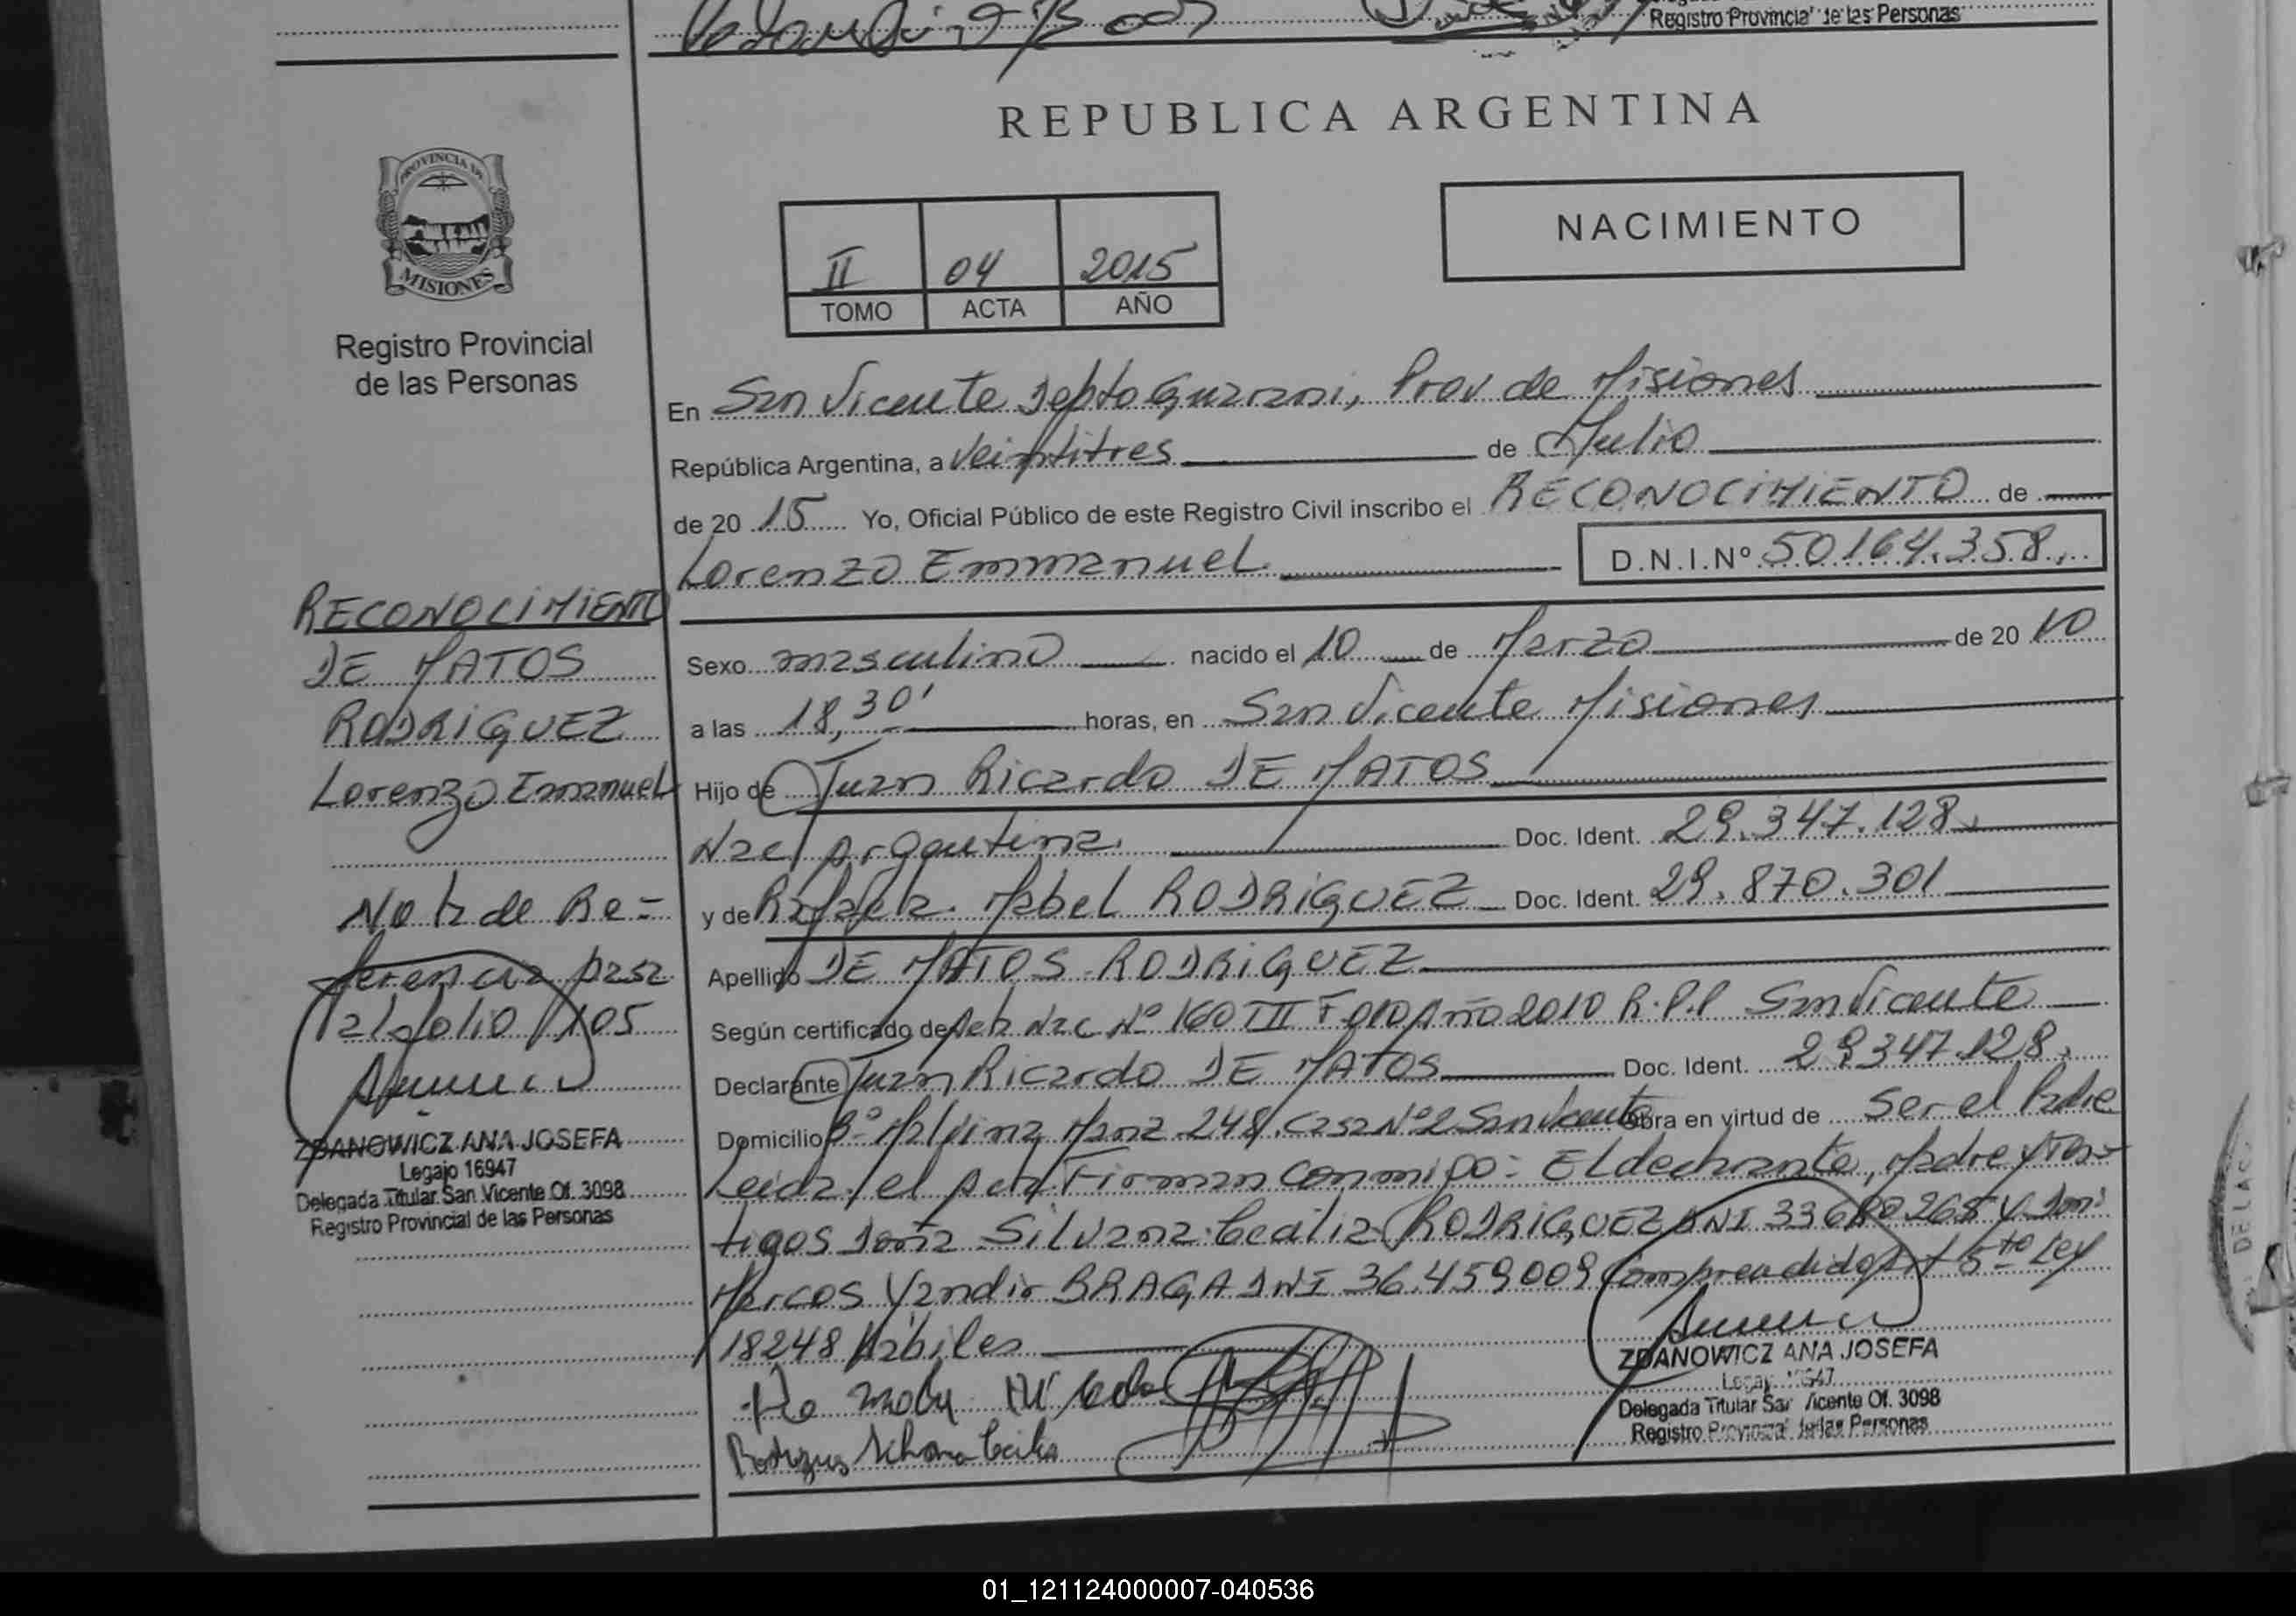 Registro Provincial de las Personas
REPUBLICA ARGENTINA
PROVINCIA DE
MISIONES
Registro Provincial
de las Personas
II 04 2015
TOMO ACTA AÑO
NACIMIENTO
En San Vicente Depto Guarani, Prov de Misiones
República Argentina, a Veintitres de Julio
de 20 15 Yo, Oficial Público de este Registro Civil inscribo el RECONOCIMIENTO de
Lorenzo Emmanuel D.N.I.Nº 50.164.358.
Sexo masculino nacido el 10 de Marzo de 20 10
a las 18,30' horas, en San Vicente Misiones
Hijo de Juan Ricardo DE MATOS
Nac Argentina Doc. Ident. 29.347.128
y de Rafaela Mabel RODRIGUEZ Doc. Ident. 29.870.301
Apellido DE MATOS RODRIGUEZ
Según certificado de Acta Nac Nº 160 TIII Fº 010 Año 2010 R.P.P San Vicente
Declarante Juan Ricardo DE MATOS Doc. Ident. 29.347.128
Domicilio Bº Malvina Manz 248 Casa Nº 2 San Vicente Obra en virtud de Ser el Padre
Leida el Acta Firman conmigo: El declarante, Madre y Tes-
tigos Doña Silvana Cecilia RODRIGUEZ DNI y Don
Marcos Yandir BRAGA DNI 36.459.009 Comprendido Art 5to Ley
18248 Hábiles
Rodriguez Silvana Cecilia
ZDANOWICZ ANA JOSEFA
Legajo 16947
Delegada Titular San Vicente Of. 3098
Registro Provincial de las Personas
RECONOCIMIENTO
DE MATOS
RODRIGUEZ
Lorenzo Emmanuel
Nota de Re=
ferencia pasa
al folio 105
ZDANOWICZ ANA JOSEFA
Legajo 16947
Delegada Titular San Vicente Of. 3098
Registro Provincial de las Personas
DE LAS
01_121124000007-040536